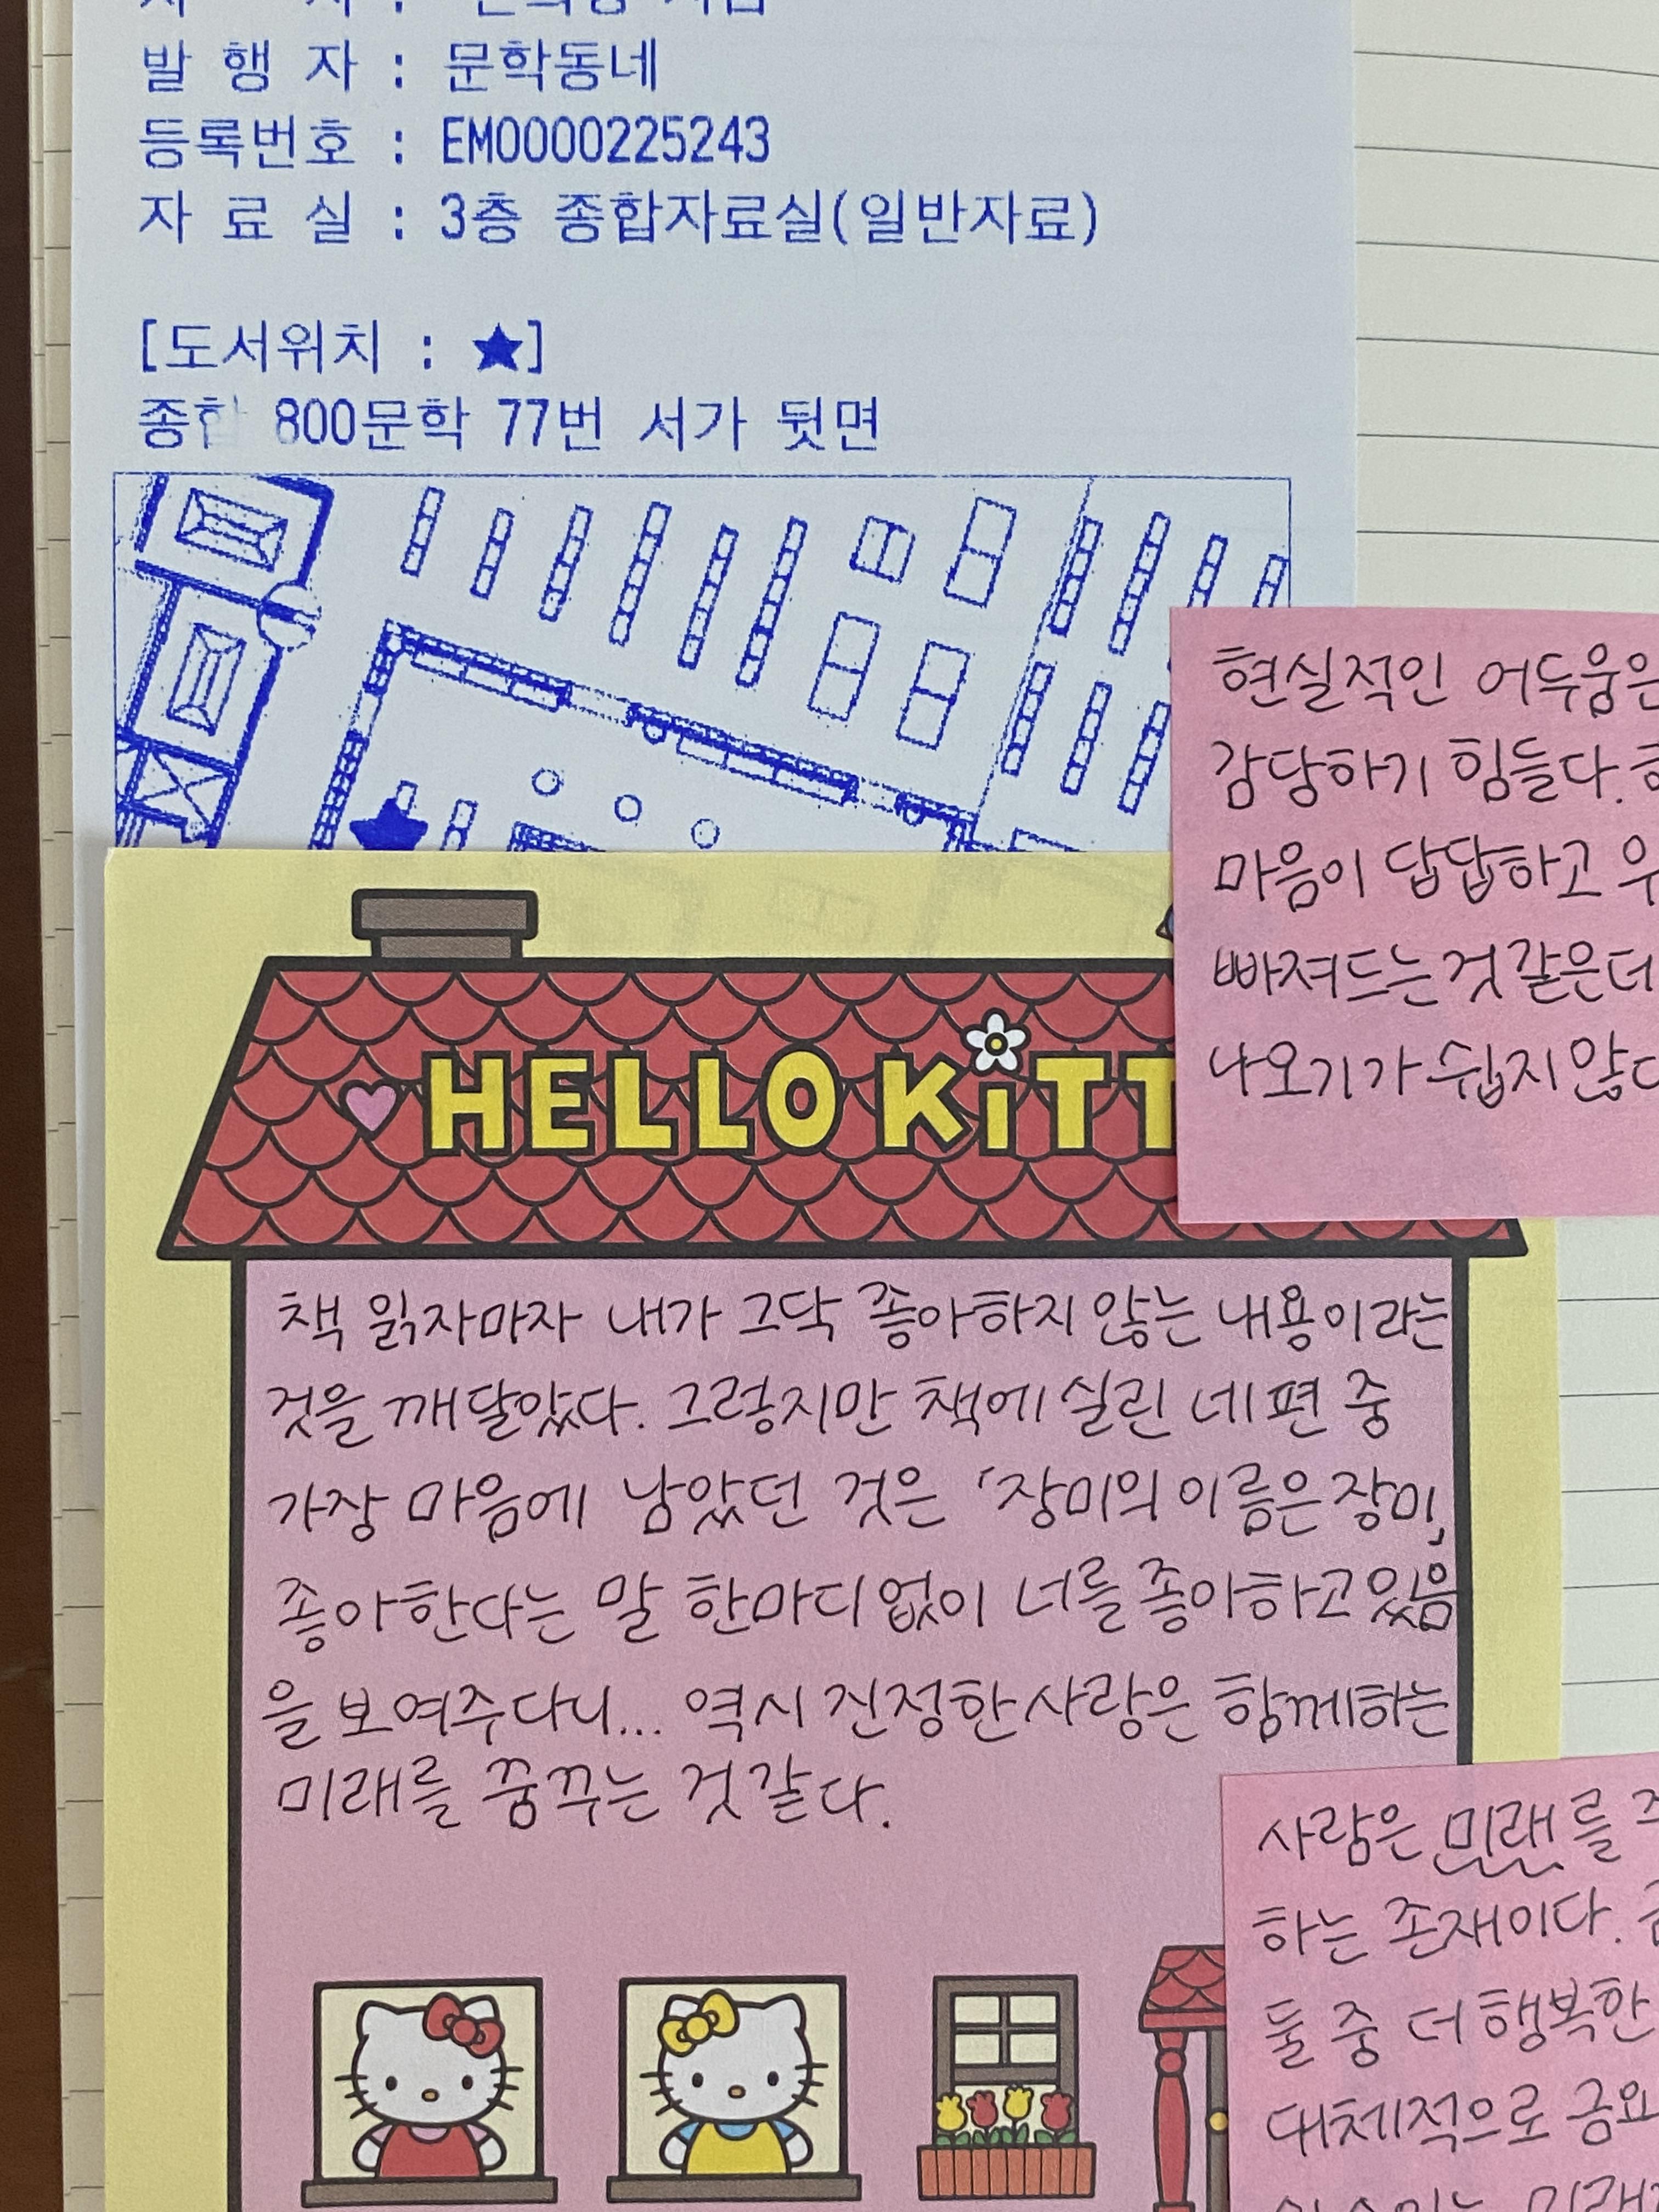 발 행 자 : 문학동네
등록번호 : EM0000225243
자 료 실 : 3층 종합자료실(일반자료)
[도서위치 : ★]
종합 800문학 77번 서가 뒷면
현실적인 어두움은
감당하기 힘들다.
마음이 답답하고
빠져드는것 같은데
나오기가 쉽지않다
HELLO KITT
책 읽자마자 내가 그닥 좋아하지 않는 내용이라는
것을 깨달았다. 그렇지만 책에 실린 네편 중
가장 마음에 남았던 것은 '장미의 이름은 장미,
좋아한다는 말 한마디 없이 너를 좋아하고 있음
을 보여주다니... 역시 진정한 사랑은 함께하는
미래를 꿈꾸는 것 같다.
사람은 미래를
하는 존재이다.
둘 중 더 행복한
대체적으로 금요